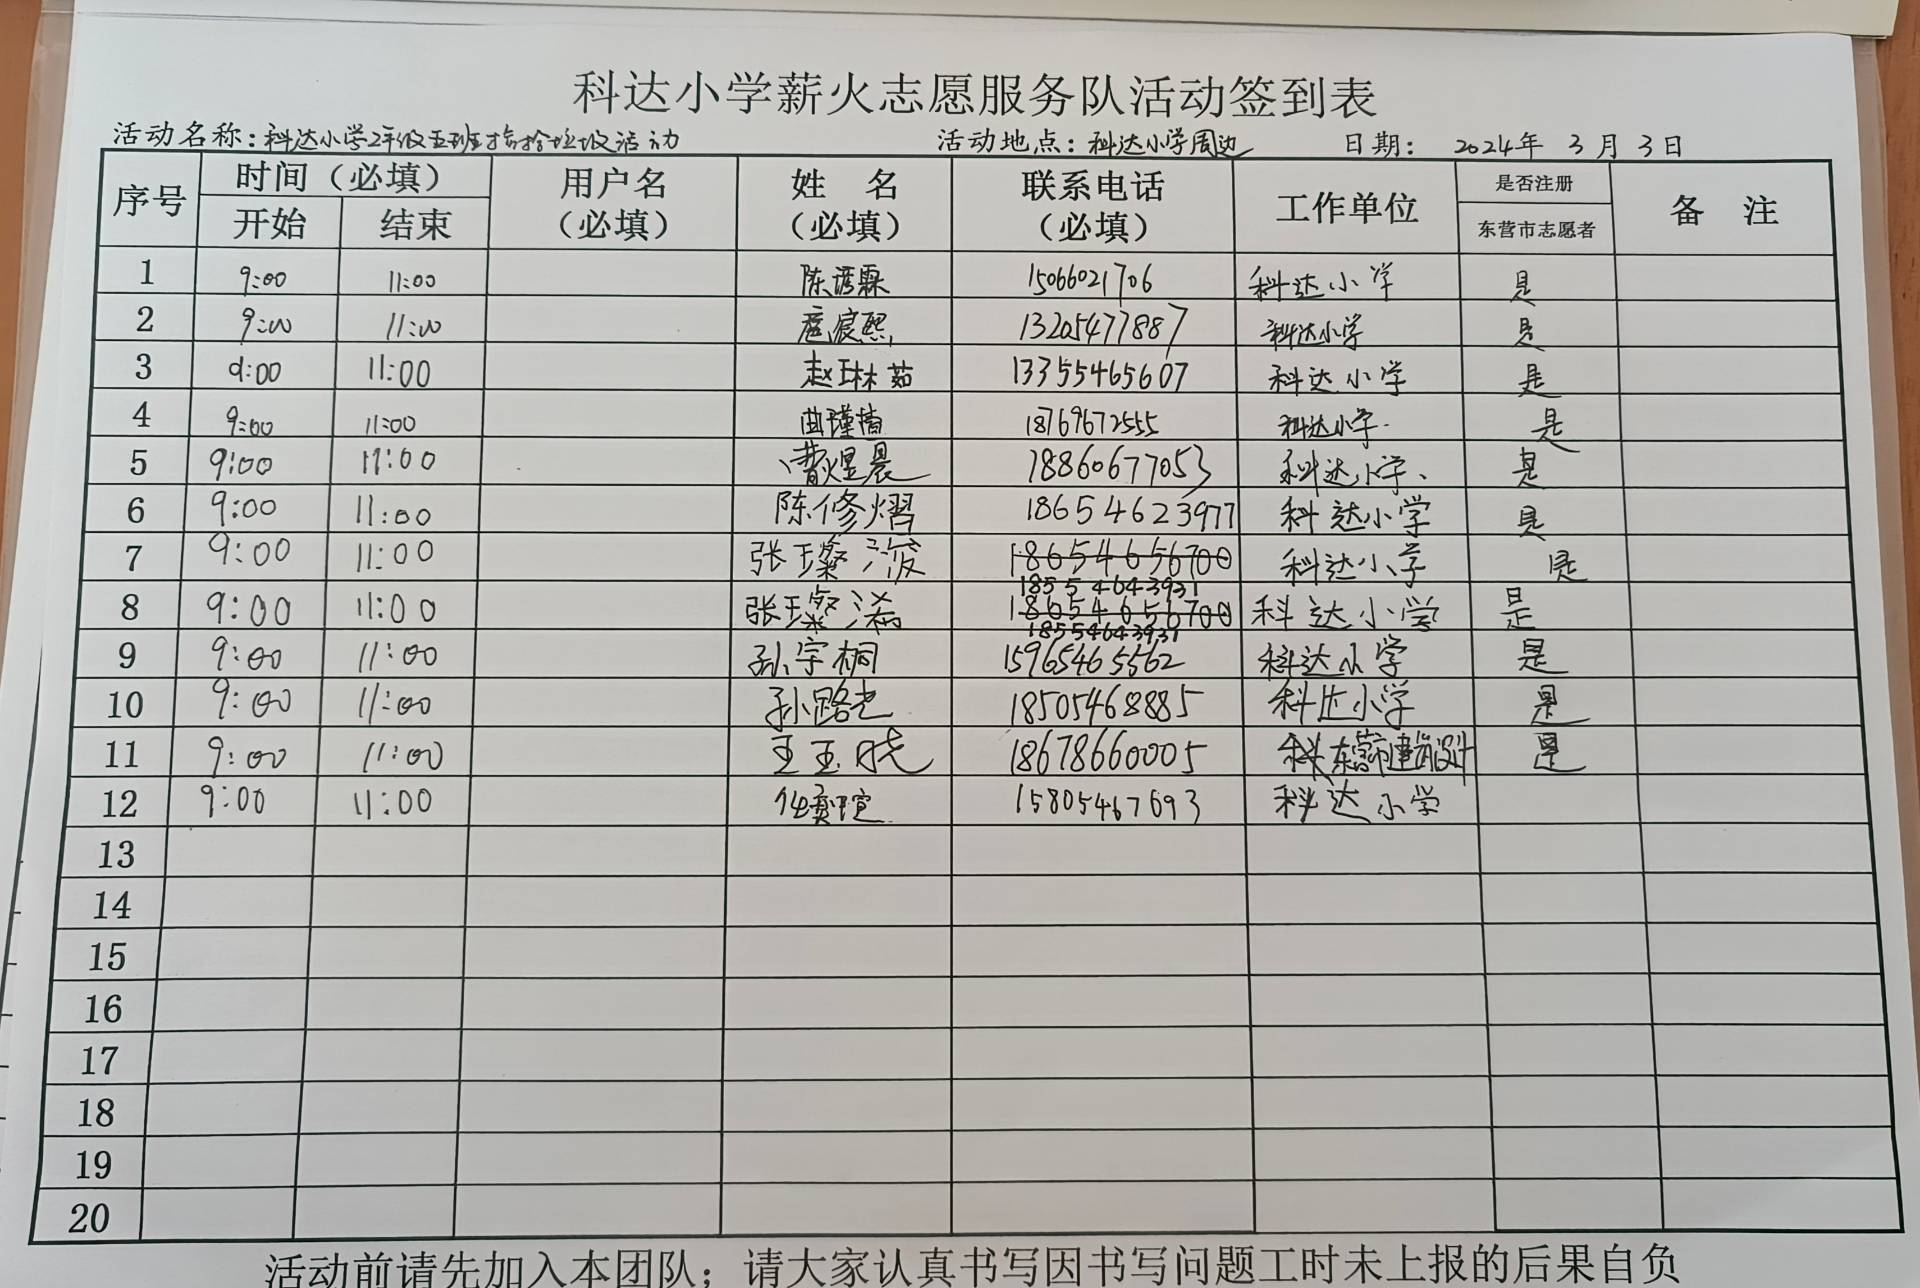 科达小学薪火志愿服务队活动签到表
活动名称：科达小学2年级五班捡拾垃圾活动 活动地点：科达小学周边 日期： 2024年 3月 3日
序号 时间（必填） 用户名（必填） 姓 名（必填） 联系电话（必填） 工作单位 是否注册 备 注
开始 结束 东营市志愿者
1 9:00 11:00 陈 霖 15066021706 科达小学 是
2 9:00 11:00 宸熙 13205477887 科达小学 是
3 9:00 11:00 赵琳茹 13355465607 科达小学 是
4 9:00 11:00 曲瑾楠 18769672555 科达小学 是
5 9:00 11:00 曹煜晨 18860677053 科达小学、 是
6 9:00 11:00 陈修熠 18654623977 科达小学 是
7 9:00 11:00 张璨浚 18654656700 科达小学 是
18554643931
8 9:00 11:00 张璨浠 18654656700 科达小学 是
18554643931
9 9:00 11:00 孙宇桐 15965465562 科达小学 是
10 9:00 11:00 孙路尧 18505468885 科达小学 是
11 9:00 11:00 王玉晓 18678660005 东营市建筑设计 是
12 9:00 11:00 15805467693 科达小学
13
14
15
16
17
18
19
20
活动前请先加入本团队；请大家认真书写因书写问题工时未上报的后果自负